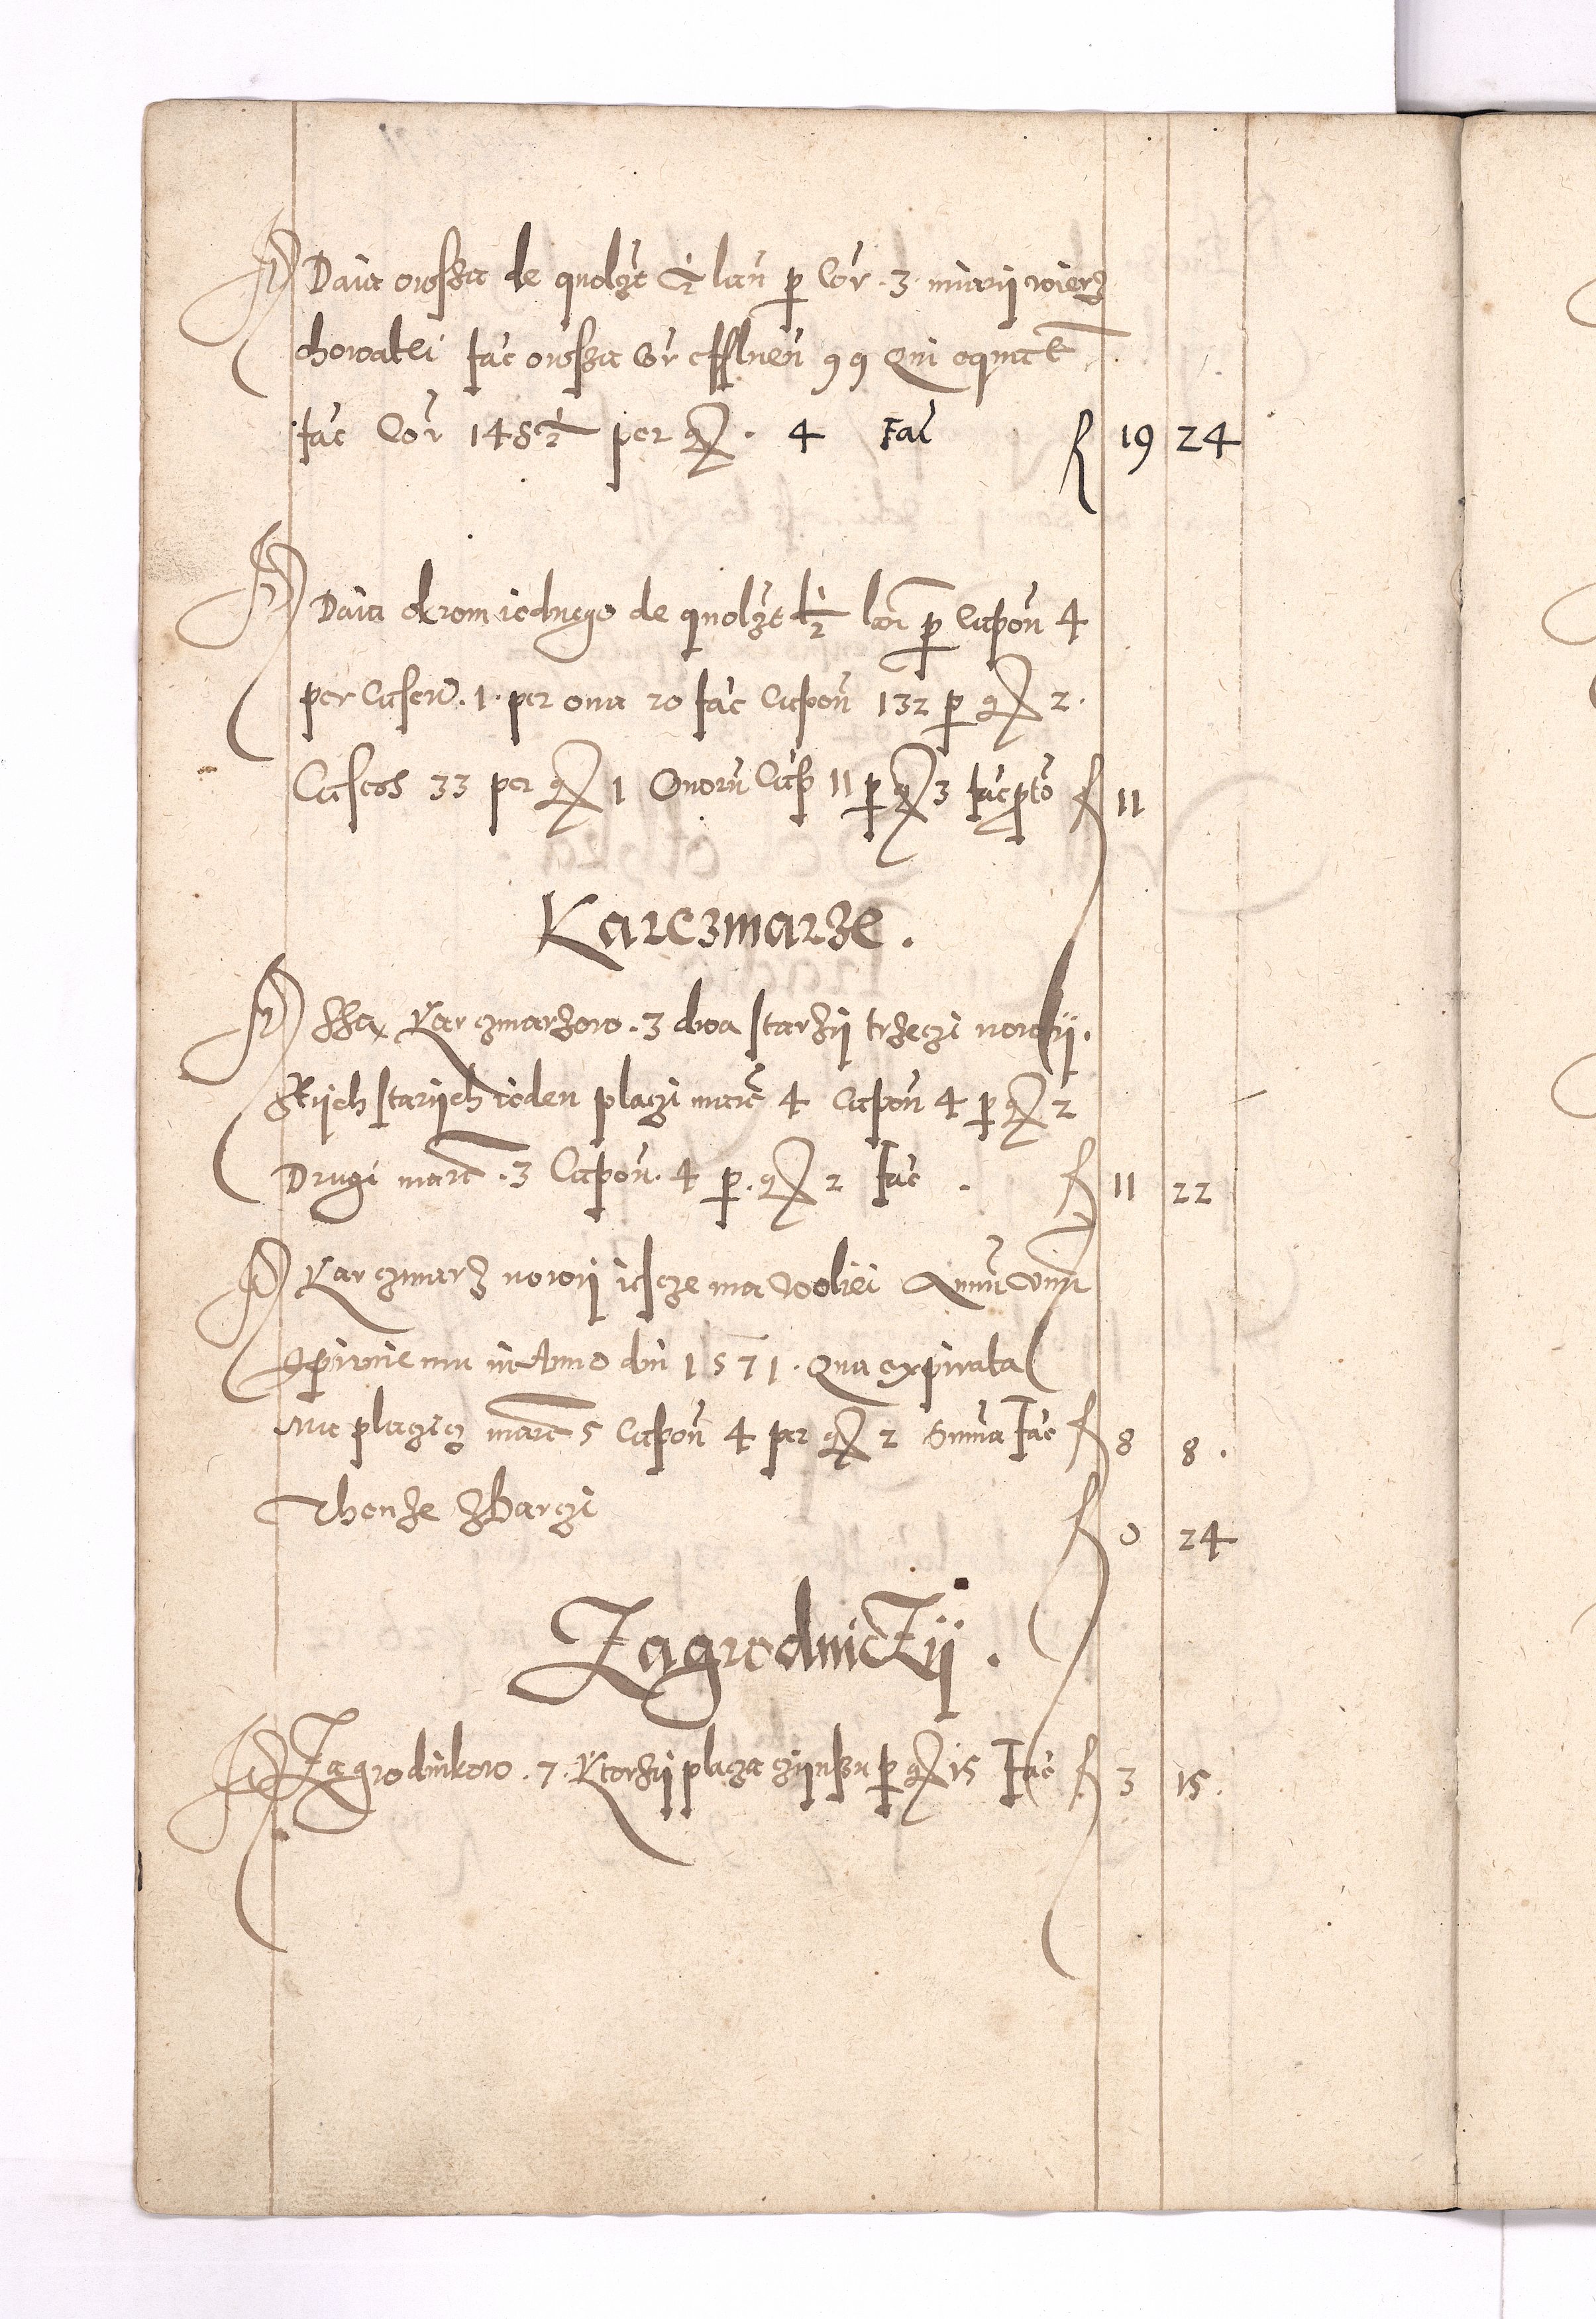 Daia owsza de quolzt ½ lan p Cor. 3 miary wierz
chowatei fac owsza Cor efflueu 99 Qui equat
fac Cor 148½ per gr. 4 Fac f 19 24
Daia okrom iednego de quolzt ½ lan p Capon 4
per Caseu. 1. per oua 20 fac Capon 132 p gr 2.
Caseos 33 per gr 1 Ouoru Cap 11 p gr 3 fac f 11
Karczmarze.
Ssa Karczmarzow. 3 dwa starzy trzeczi nowy.
Stych starych ieden placzi marc 4 Capon 4 p gr 2
Drugi marc. 3 Capon. 4 p. gr 2 fac. f 11 22
Karczmarz nowy iescze ma woliei Annu vnu
in Anno dni 1571. Qua expirata
ma placzicz marc 5 Capon 4 per gr 2 Suma fac f 8 8.
Thenze zBarczi f 0 24
Zagrodniczy.
Zagrodnikow. 7. Ktorzy placza czynszu p gr 15 Fac f 3 15.